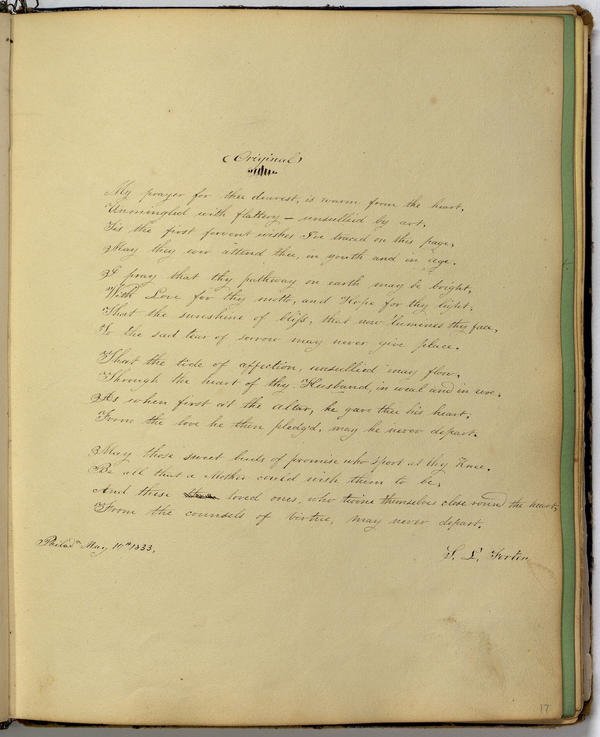 (Original)
My prayer for thee dearest, is warm from the heart,
Unmingled with flattery — unsullied by art,
Tis the first fervent wishes I've traced on this page,
May they ever attend thee, in youth and in age.
I pray that thy pathway on earth may be bright,
With Love for thy motto, and Hope for thy light,
That the sunshine of bliss, that now lumines thy face,
To the sad tear of sorrow may never give place.
That the tide of affection, unsullied may flow,
Through the heart of thy Husband, in weal and in woe,
As when first at the altar, he gave thee his heart,
From the love he then pledg'd, may he never depart.
May those sweet buds of promise who sport at thy Knee,
Be all that a Mother could wish them to be,
And these loved ones, who twine themselves close round the heart,
From the counsels of virtue, may never depart.
Philad. May 1833.
S. L. Forten
17